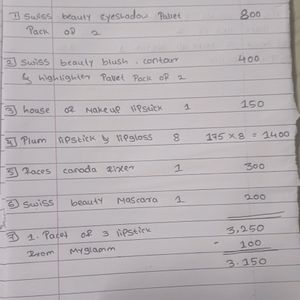 1) Swiss beauty eyeshadow Pallet 800
Pack of 2
2) Swiss beauty blush, contour 400
& highlighter Pallet Pack of 2
3) house of makeup lipstick 1 150
4) Plum lipstick & lipgloss 8 175 x 8 = 1400
5) Faces canada fixer 1 300
6) Swiss beauty Mascara 1 200
7) 1. Pacet of 3 lipstick 3,250
from Myglamm - 100
3.150